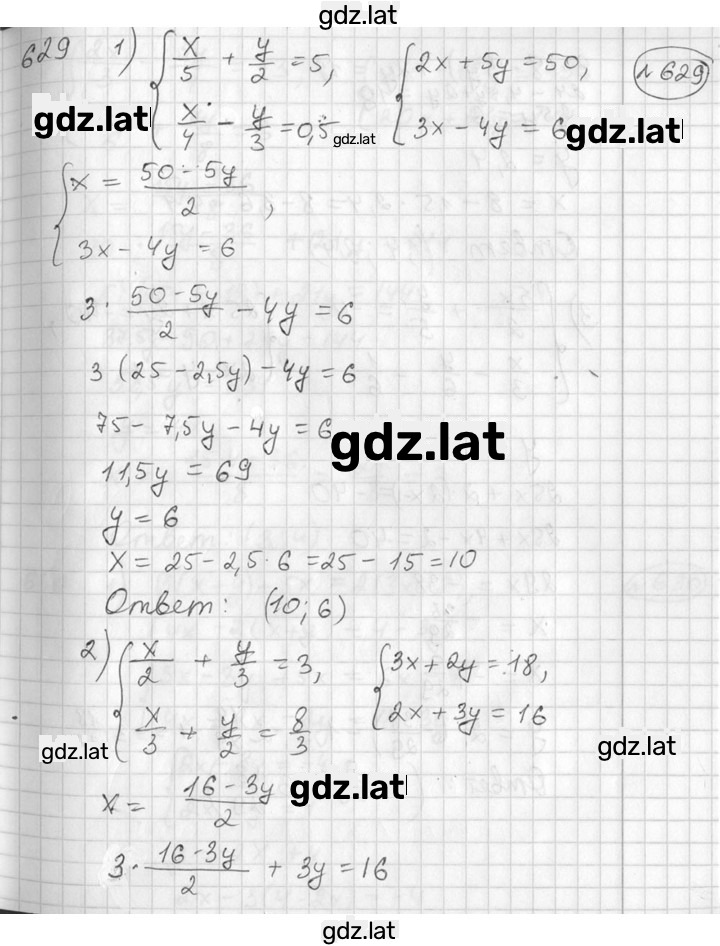 gdz.lat
629 1) { x/5 + y/2 = 5, { 2x + 5y = 50, №629
x/4 - y/3 = 0,5 3x - 4y = 6
gdz.lat gdz.lat gdz.lat
{ x = (50 - 5y)/2,
3x - 4y = 6
3 · (50 - 5y)/2 - 4y = 6
3 (25 - 2,5y) - 4y = 6
75 - 7,5y - 4y = 6
gdz.lat
11,5y = 69
y = 6
x = 25 - 2,5 · 6 = 25 - 15 = 10
Ответ: (10; 6)
2) { x/2 + y/3 = 3, { 3x + 2y = 18,
x/3 + y/2 = 8/3 2x + 3y = 16
gdz.lat gdz.lat
x = (16 - 3y)/2 gdz.lat
3 · (16 - 3y)/2 + 3y = 16
gdz.lat